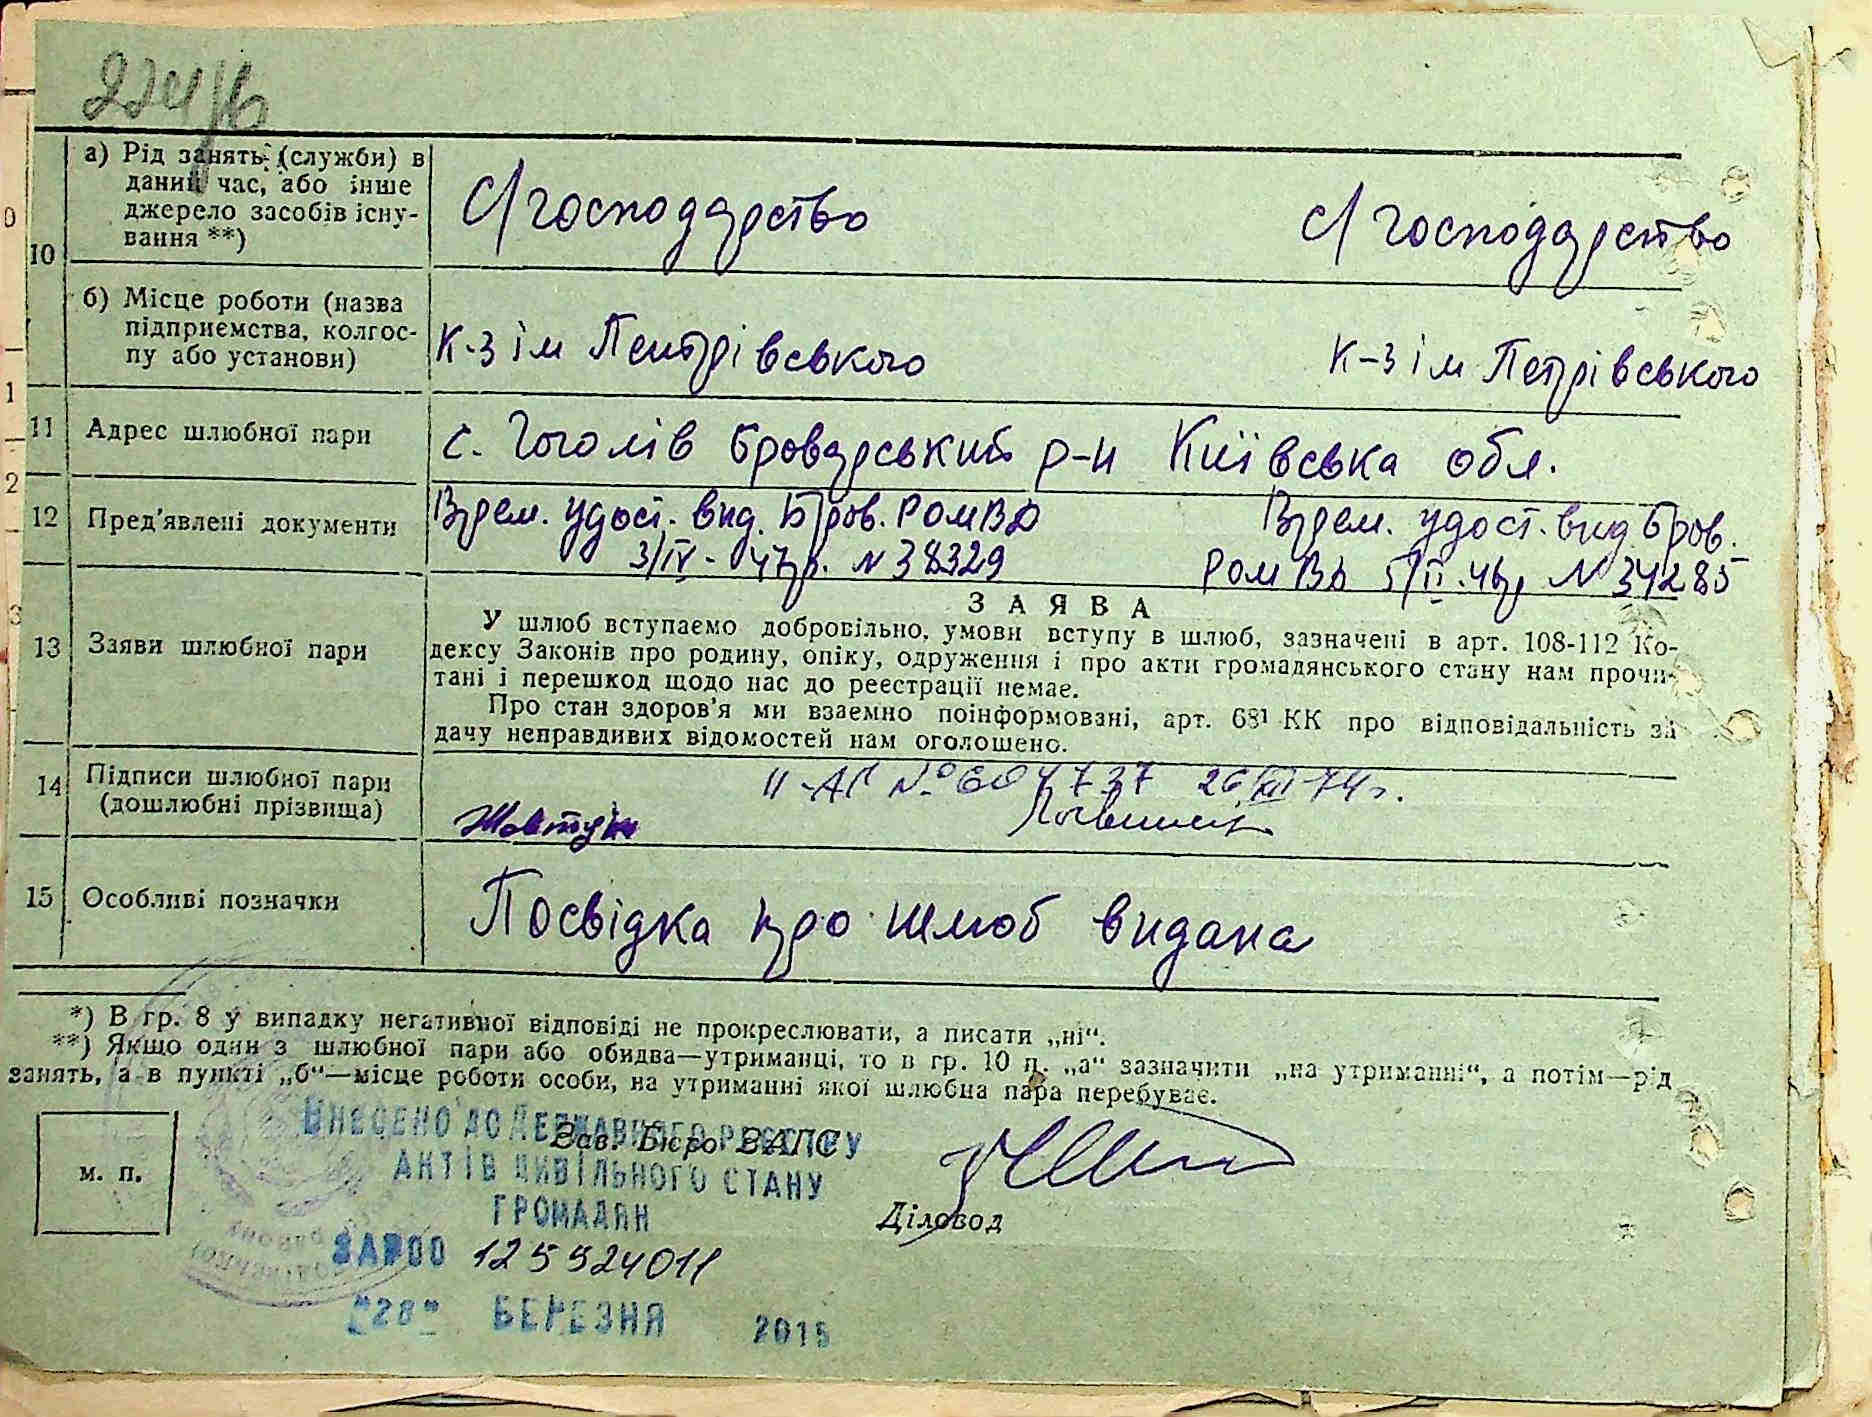 224/6
10
а) Рід занять (службн) в
даний час, або інше
джерело засобів існу-
вання **)
С/господарство
с/господарство
б) Місце роботи (назва
підприємства, колгос-
пу або установи)
К-з ім Пентрівського
К-з ім Петрівського
11
Адрес шлюбної пари
с. Гоголів Броварський р-н Київська обл.
12
Пред'явлені документи
Врем. удост. вид. Бров. РОМВД
3/IV-47р. N 38329
Врем. удост. вид Бров.
РОМВД 5/II.46р N 34285
13
Заяви шлюбної пари
ЗАЯВА
У шлюб вступаємо добровільно, умови вступу в шлюб, зазначені в арт. 108-112 Ко-
дексу Законів про родину, опіку, одруження і про акти громадянського стану нам прочи-
тані і перешкод щодо нас до реєстрації немає.
Про стан здоров'я ми взаємно поінформовані, арт. 68¹ КК про відповідальність за
дачу неправдивих відомостей нам оголошено.
14
Підписи шлюбної пари
(дошлюбні прізвища)
II-АГ № 604737 26/XII-74г.
Жовтун
15
Особливі позначки
Посвідка про шлюб видана
*) В гр. 8 у випадку негативної відповіді не прокреслювати, а писати „ні“.
**) Якщо один з шлюбної пари або обидва—утриманці, то в гр. 10 п. „а“ зазначити „на утриманні“, а потім—рід
занять, а в пункті „б“—місце роботи особи, на утриманні якої шлюбна пара перебуває.
м. п.
Зав. Бюро ЗАГС
Діловод
ВНЕСЕНО ДО ДЕРЖАВНОГО РЕЄСТРУ
АКТІВ ЦИВІЛЬНОГО СТАНУ
ГРОМАДЯН
ЗА №00 125924011
"28" БЕРЕЗНЯ 2015